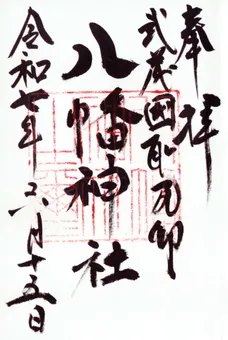 奉拝
武蔵国取瓦卸
八幡神社
令和七年 六月十五日